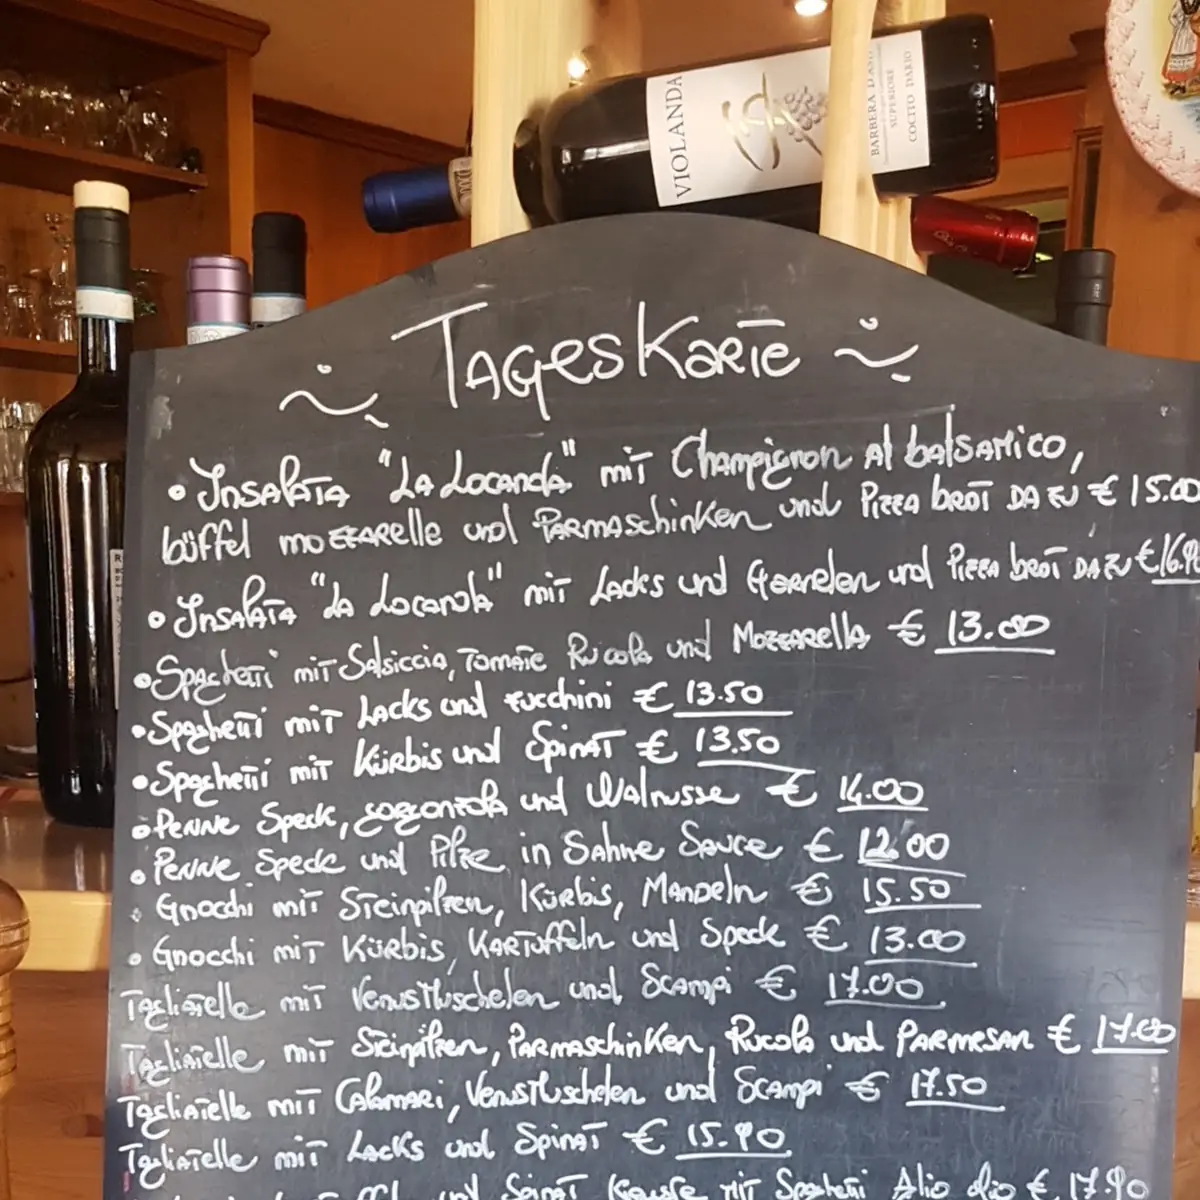 VIOLANDA
BARBERA D'ASTI
SUPERIORE
COCITO DARIO
TAGESKARTE
• INSALATA "LA LOCANDA" MIT Champignon Al balsamico,
büffel mozzarelle und PARMAschinken und Pizza brot DAZU € 15.00
• INSALATA "LA LOCANDA" MIT Lacks und Garnelen und Pizza brot DAZU € 16.90
• Spaghetti mit Salsiccia, Tomate Rucola und Mozzarella € 13.00
• Spaghetti mit Lacks und zucchini € 13.50
• Spaghetti mit Kürbis und Spinat € 13.50
• PENNE Speck, gorgonzola und Walnusse € 14.00
• PENNE Speck und Pilze in Sahne Sauce € 12.00
• Gnocchi mit Steinpilzen, Kürbis, Mandeln € 15.50
• Gnocchi mit Kürbis, Kartoffeln und Speck € 13.00
Tagliatelle mit Venusmuschelen und Scampi € 17.00
Tagliatelle mit Steinpilzen, Parmaschinken, Rucola und Parmesan € 17.00
Tagliatelle mit Calamari, Venusmuschelen und Scampi € 17.50
Tagliatelle mit Lacks und Spinat € 15.90
und Spinat mit Spaghetti Alio olio € 17.90